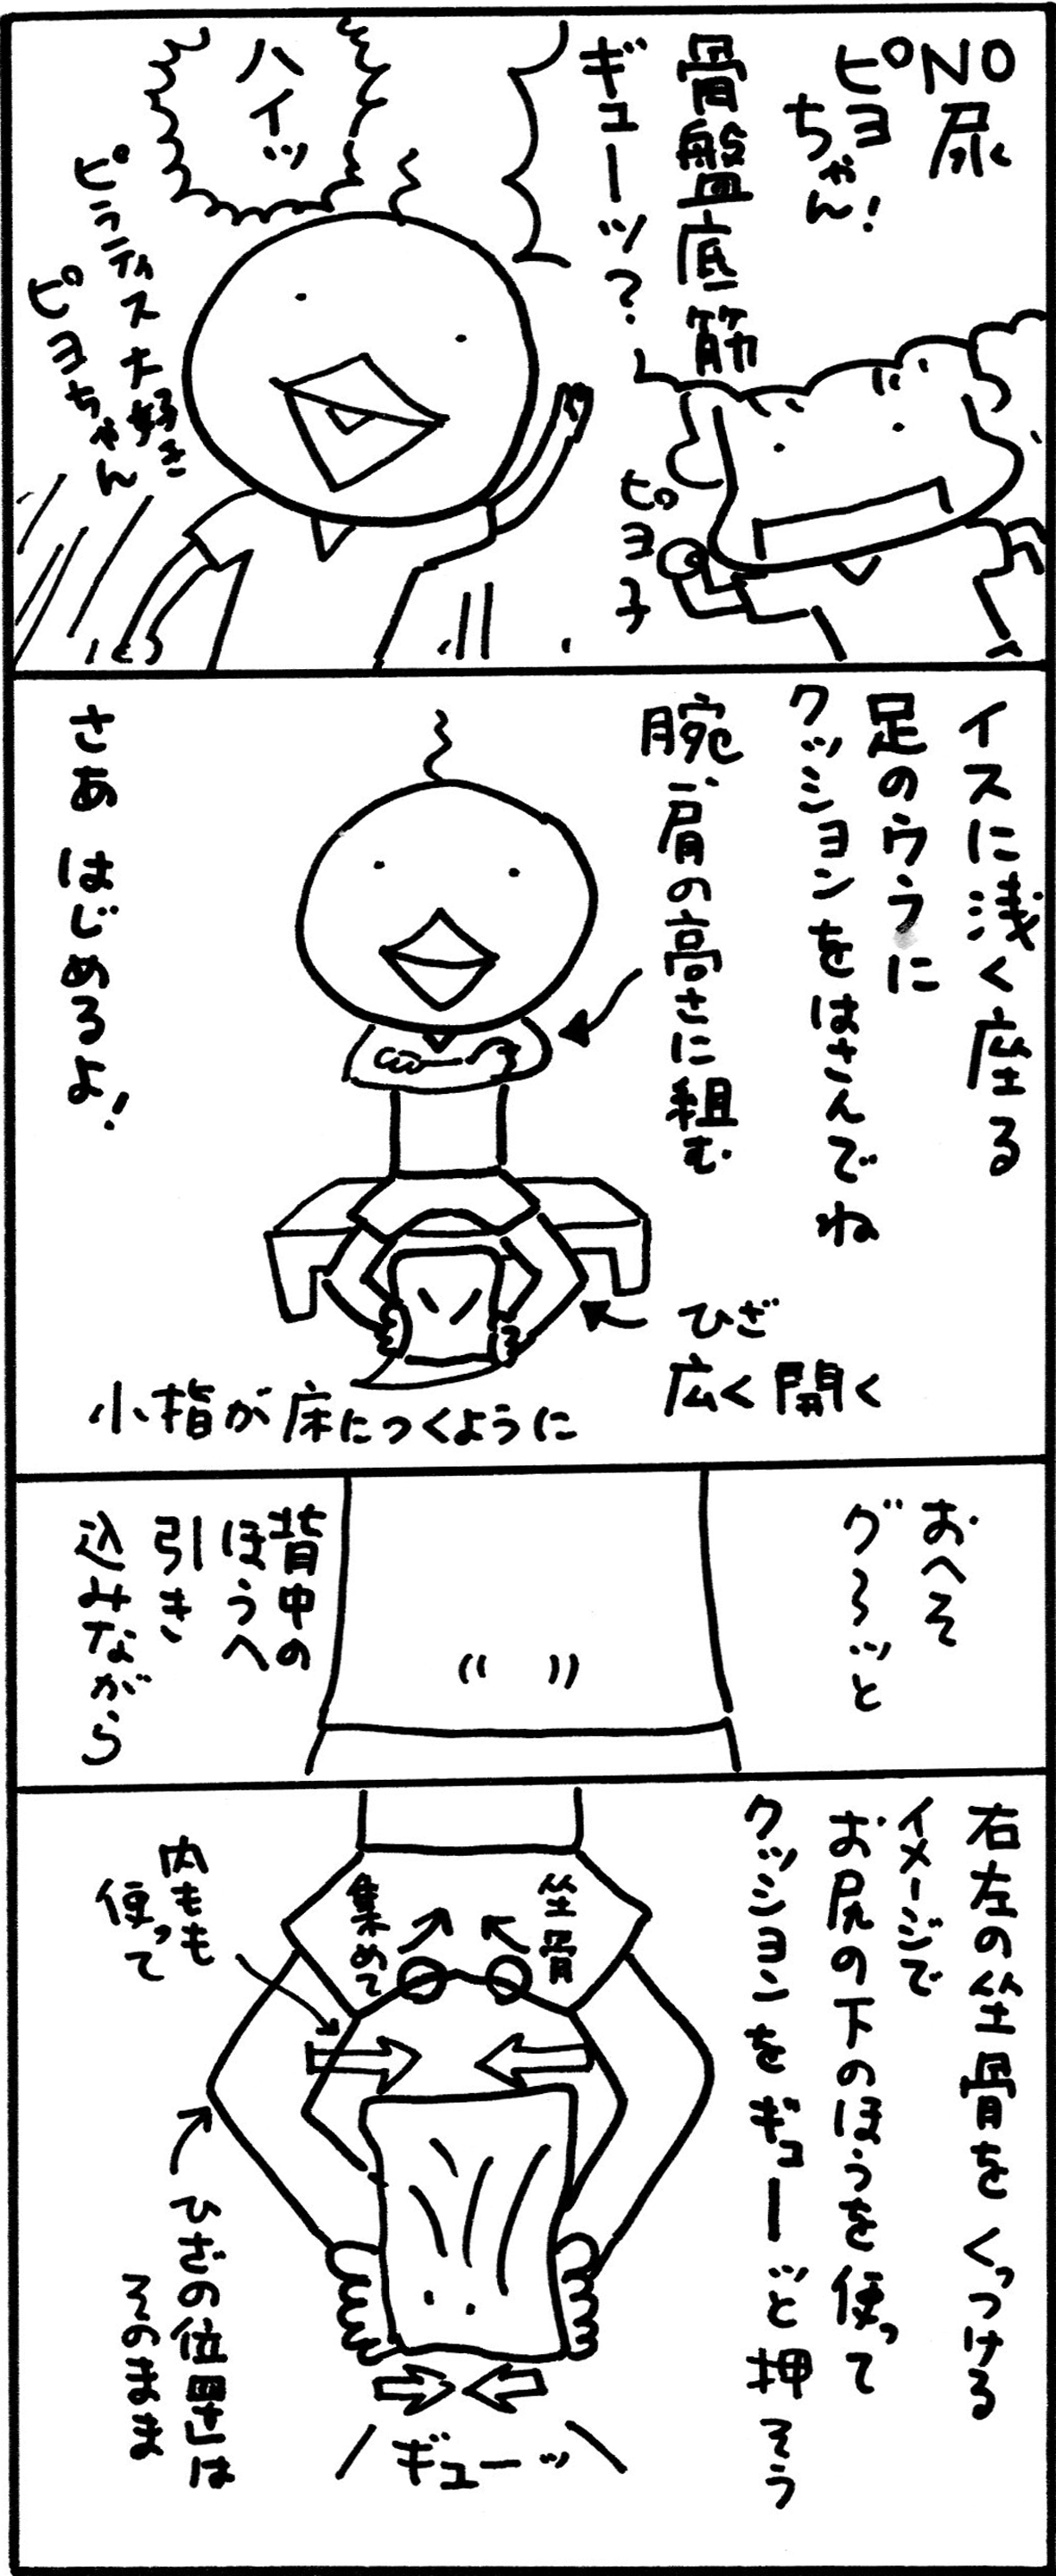 NO尿
ピヨ
ちゃん!
骨盤底筋
ギューッ?
ピヨ子
ハイッ
ピラティス大好き
ピヨちゃん
イスに浅く座る
足のウラに
クッションをはさんでね
腕、肩の高さに組む
ひざ
広く開く
小指が床につくように
さあ はじめるよ!
おへそ
グ〜ッと
背中の
ほうへ
引き
込みながら
右左の坐骨を くっつける
イメージで
お尻の下のほうを使って
クッションをギューーッと押そう
坐骨
集めて
内もも
使って
ひざの位置は
そのまま
ギューーッ